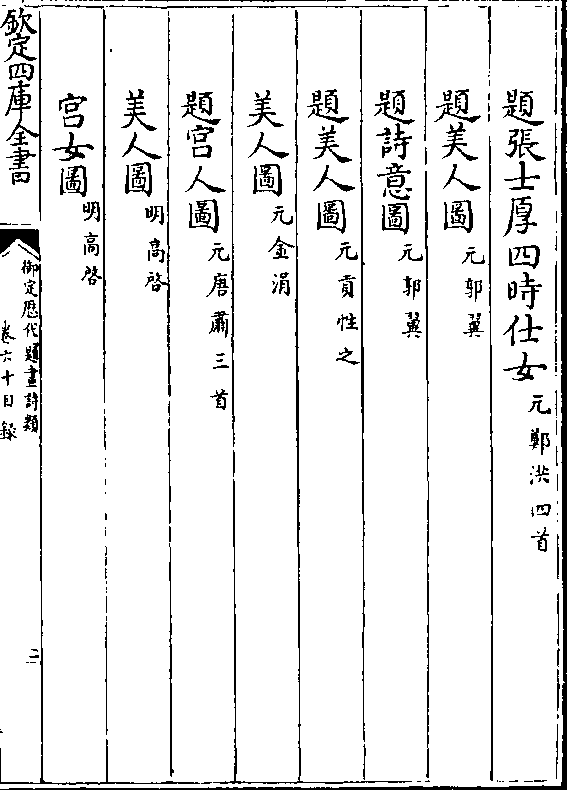 題張士厚四時仕女元鄭洪四首
題美人圖元郭翼
題詩意圖元郭翼
題美人圖元貢性之
美人圖元金涓
題宫人圖元唐肅三首
美人圖明高啓
宫女圖明高啓
欽定四庫全書
御定歴代題畫詩類
卷六十目録
二